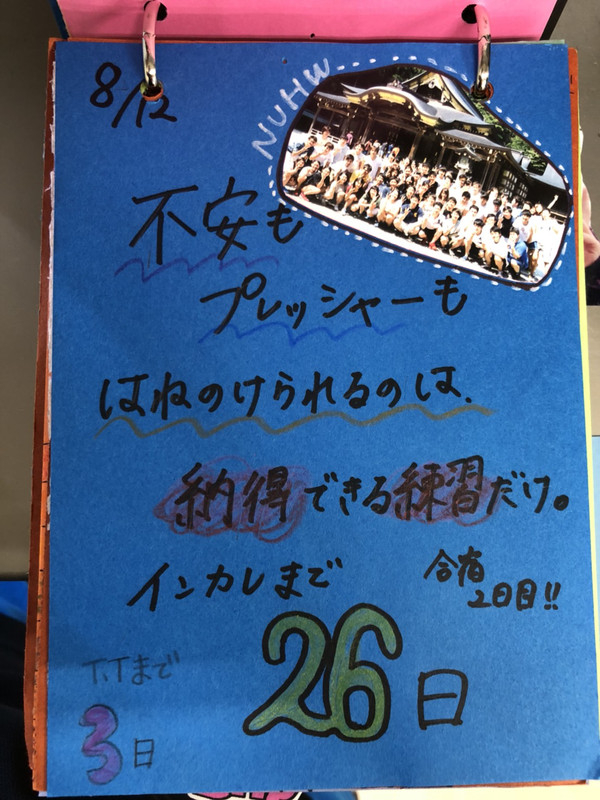 8/12
NUHW
不安も
プレッシャーも
はねのけられるのは、
納得できる練習だけ。
インカレまで
26日
合宿
2日目!!
T.Tまで
3日